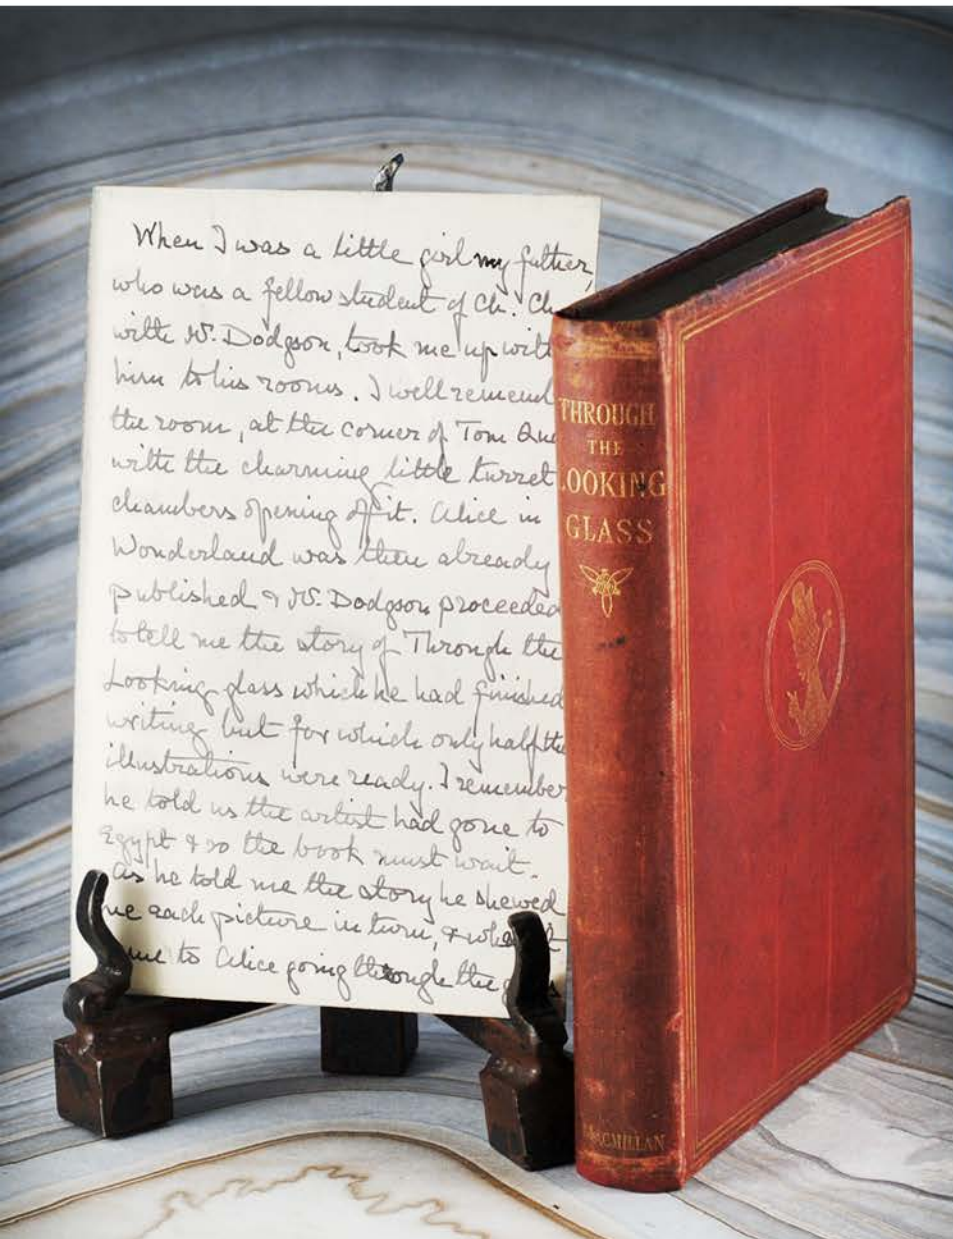 When I was a little girl my father,
who was a fellow student of Ch. Ch
with Mr. Dodgson, took me up with
him to his rooms. I well rememb
the room, at the corner of Tom Qu
with the charming little turret
chambers opening off it. Alice in
Wonderland was then already
published & Mr. Dodgson proceeded
to tell me the story of Through the
Looking-glass which he had finished
writing but for which only half the
illustrations were ready. I remember
he told us the artist had gone to
Egypt & so the book must wait.
As he told me the story he shewed
me each picture in turn, &
to Alice going through the
THROUGH
THE
LOOKING
GLASS
MACMILLAN